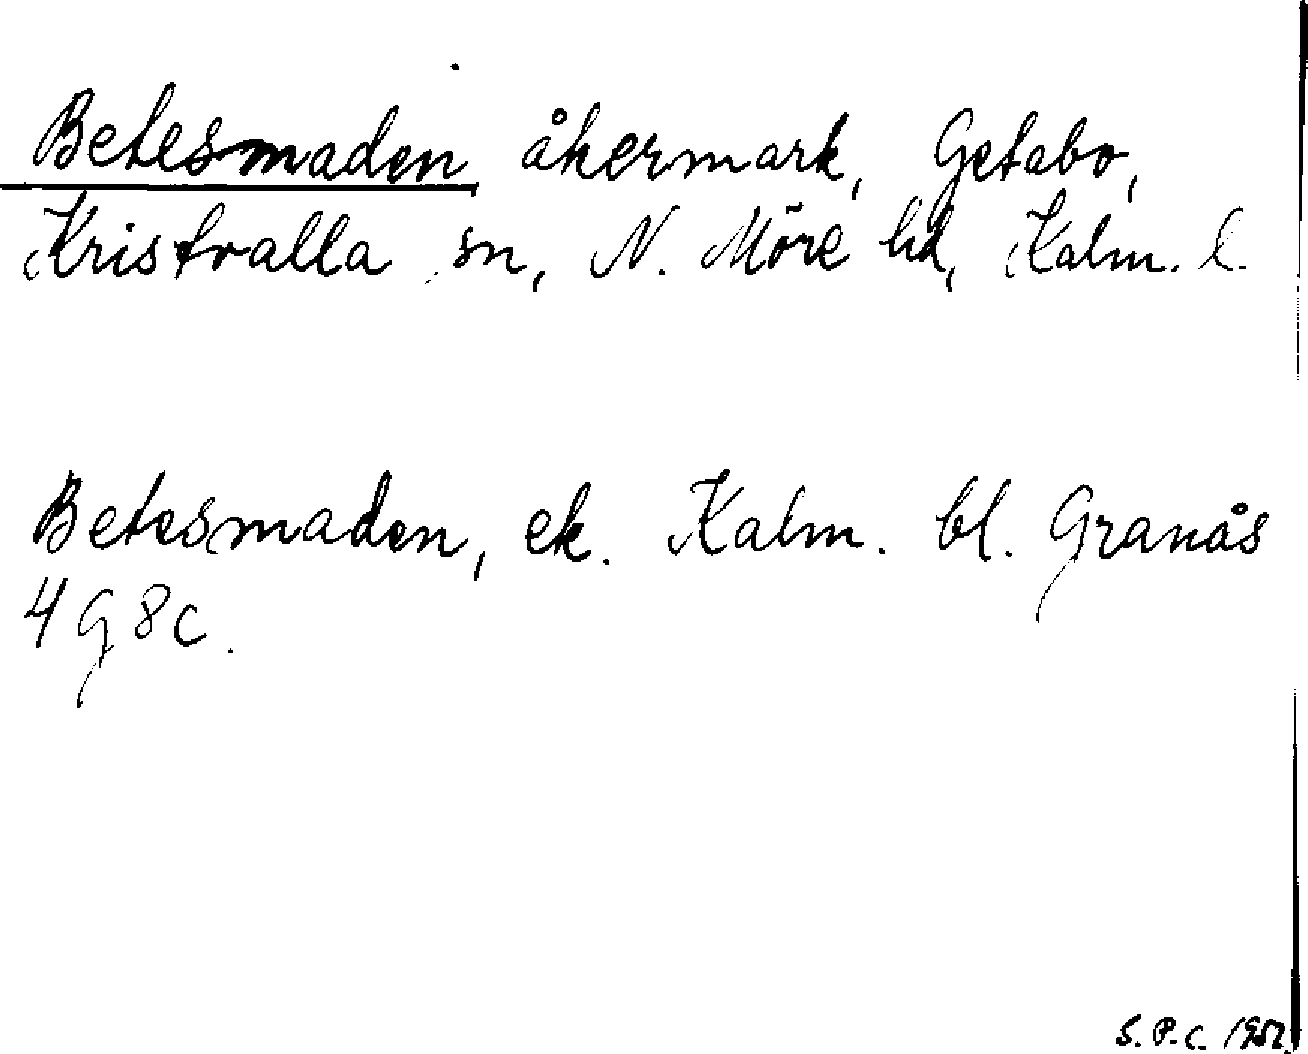 Betesmaden åkermark, Getabo,
Kristvalla sn, N. Möre hd, Kalm. l.
Betesmaden, ek. Kalm. bl. Granås
4G 8c.
S.P.C. 1952.